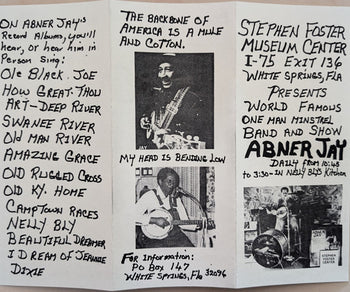 ON ABNER JAY'S
Record Albums, you'll
hear, or hear him in
Person Sing:
Ole Black Joe
How Great Thou
Art-Deep River
Swanee River
Old Man River
Amazing Grace
Old Rugged Cross
Old Ky. Home
Camptown Races
Nelly Bly
Beautiful Dreamer
I Dream of Jeannie
Dixie
THE BACKBONE OF
AMERICA IS A MULE
AND COTTON.
MY HEAD IS BENDING LOW
For Information:
PO Box 147
White Springs, Fla 32096
STEPHEN FOSTER
MUSEUM CENTER
I-75 EXIT 136
WHITE SPRINGS, FLA
PRESENTS
WORLD FAMOUS
ONE MAN MINSTREL
BAND AND SHOW
ABNER JAY
DAILY from 10:45
to 3:30-IN Nelly Bly's Kitchen
STEPHEN
FOSTER
CENTER